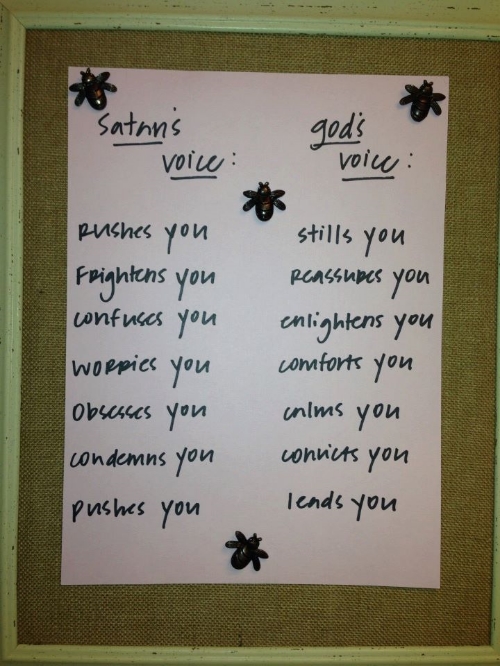 Satan's
voice:
Rushes you
Frightens you
confuses you
worries you
Obsesses you
condemns you
pushes you
god's
voice:
stills you
Reassures you
enlightens you
comforts you
calms you
convicts you
leads you